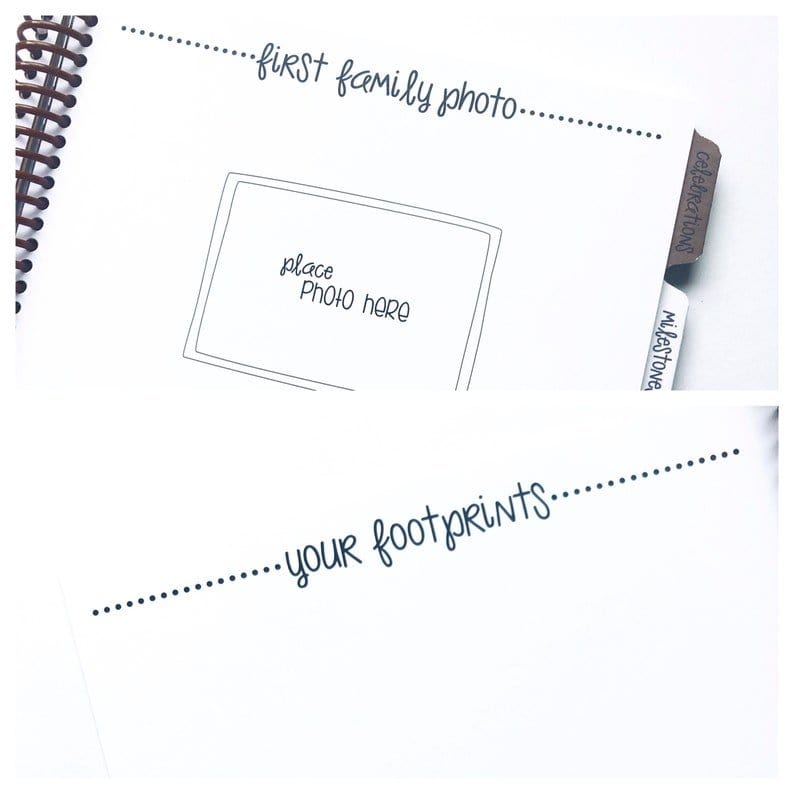 first family photo
place
photo here
celebrations
milestones
your footprints